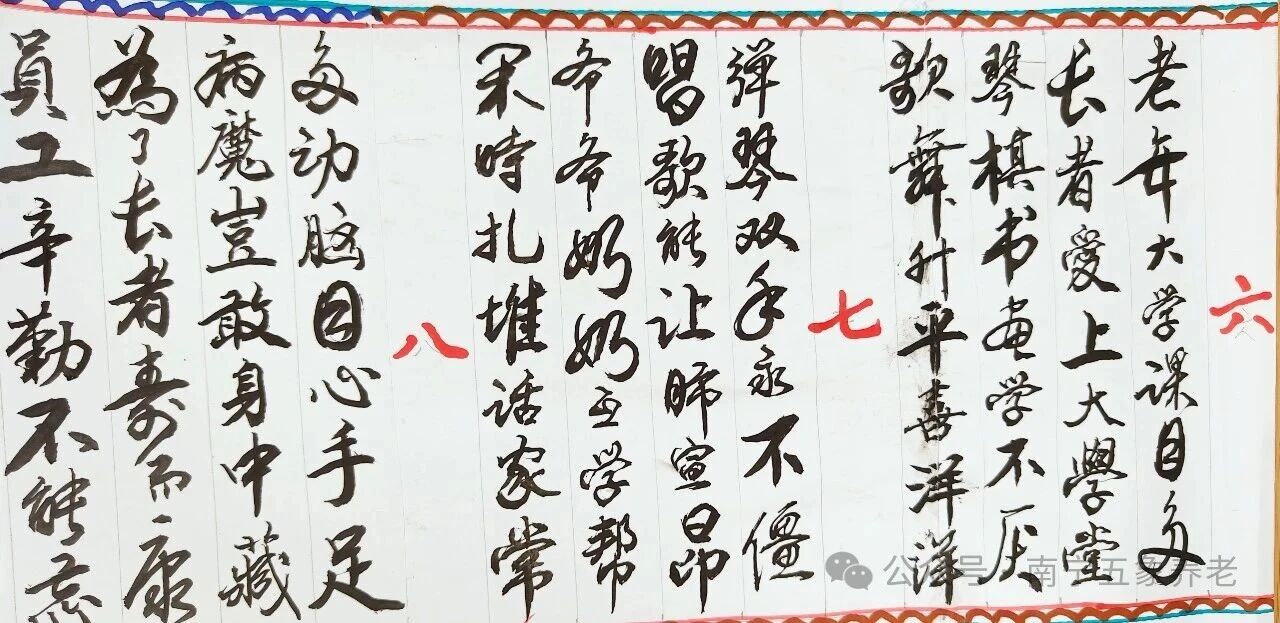 六
老年大学课目多
长者愛上大學堂
琴棋书画学不厌
歌舞升平喜洋洋
七
弹琴双手永不僵
唱歌能让肺宣昂
爷爷奶奶互学帮
時扎堆话家常
八
多动脑目心手足
病魔豈敢身中藏
為了长者寿而康
員工辛勤不能忘
公众号·南宁五象养老